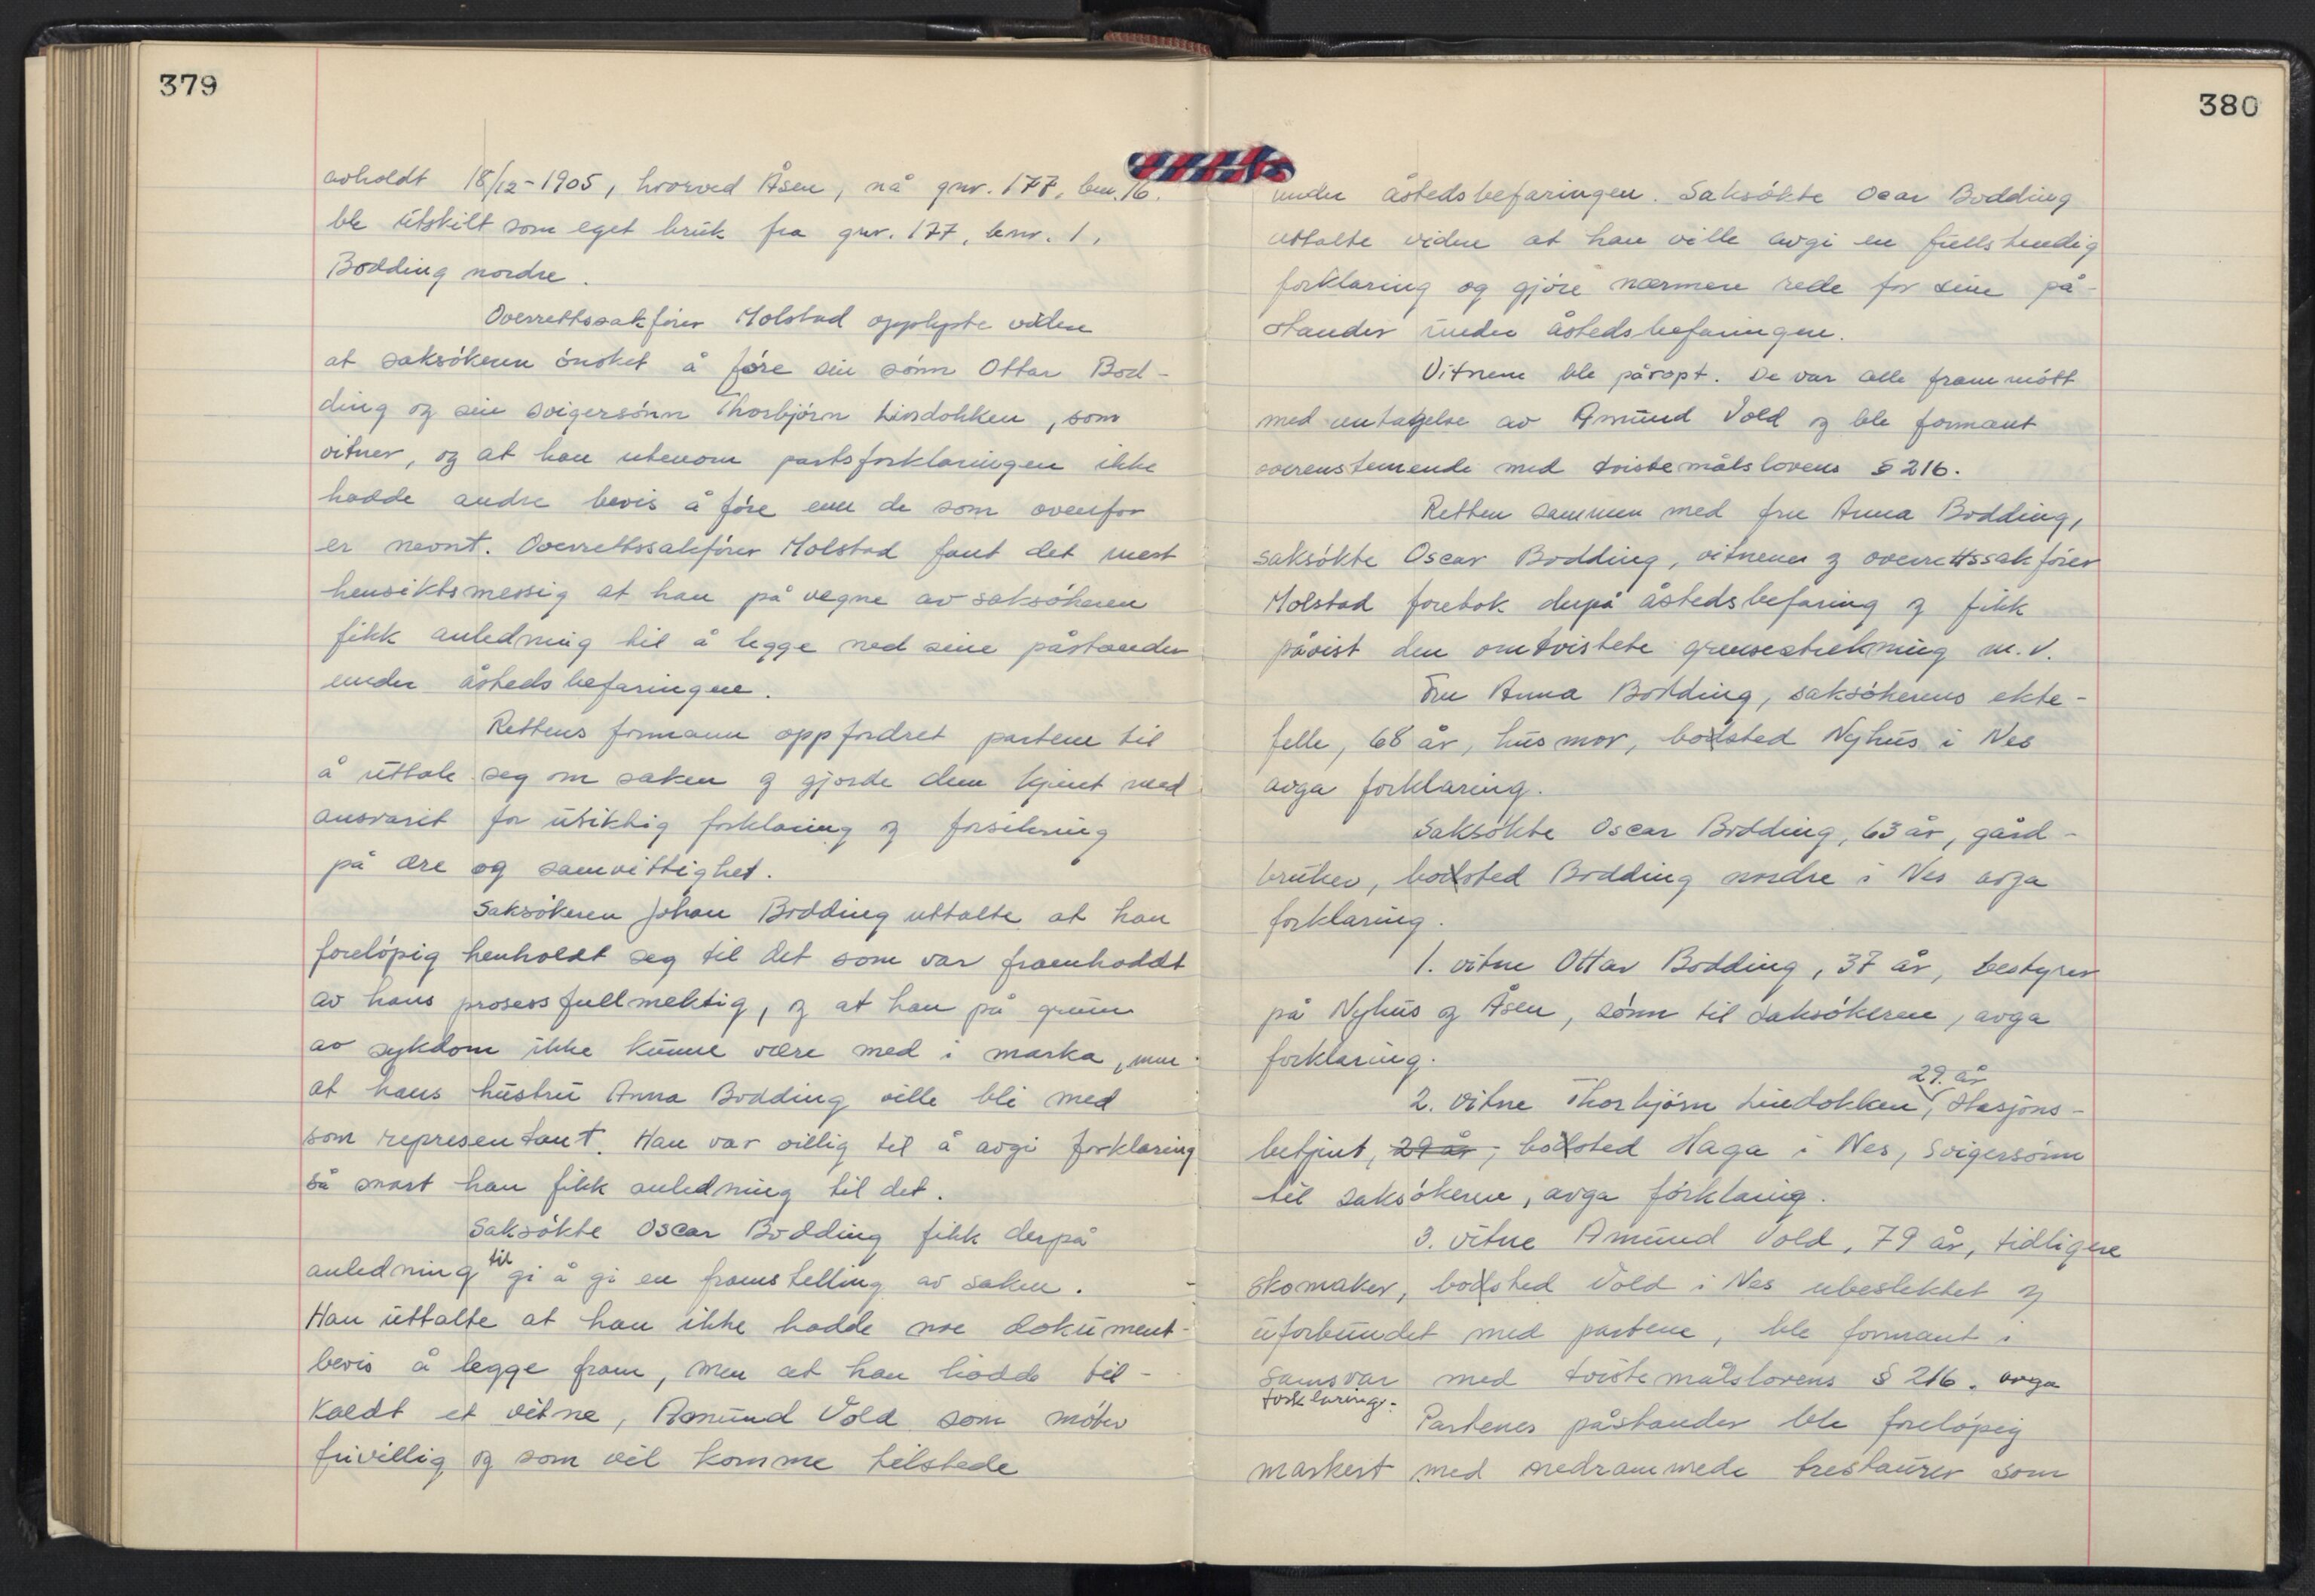 379
avholdt 18/12-1905, hvorved Åsen, nå gnr. 177, bnr. 16.
ble utskilt som eget bruk fra gnr. 177, bnr. 1,
Bodding nordre.
Overrettssakfører Molstad opplyste viden
at saksøkeren ønsket å føre sin sønn Ottar Bod-
ding og sin svigersønn Thorbjørn Lindokken, som
vitner, og at han utenom partsforklaringen ikke
hadde andre bevis å føre enn de som ovenfor
er nevnt. Overrettssakfører Molstad fant det mest
hensiktsmessig at han på vegne av saksøkeren
fikk anledning til å legge ned sine påstander
under åstedsbefaringen.
Rettens formann oppfordret partene til
å uttale seg om saken og gjorde dem kjent med
ansvaret for usiktig forklaring og forsikring
på ære og samvittighet.
Saksøkeren Johan Bodding uttalte at han
foreløpig henholdt seg til det som var framholdt
av hans prosessfullmektig, og at han på grunn
av sykdom ikke kunne være med i marka, men
at hans hustru Anna Bodding ville bli med
som representant. Han var villig til å avgi forklaring
så snart han fikk anledning til det.
Saksøkte Oscar Bodding fikk derpå
anledning til gi å gi en framstelling av saken.
Han uttalte at han ikke hadde noe dokument-
bevis å legge fram, men at han hadde til-
kaldt et vitne, Amund Vold som møter
frivillig og som vil komme tilstede
380
under åstedsbefaringen. Saksøkte Ocar Bodding
uttalte viden at han ville avgi en fullstendig
forklaring og gjøre nærmere rede for sine på-
stander under åstedsbefaringen.
Vitnene ble påropt. De var alle frammøtt
med untagelse av Amund Vold og ble formant
overenstemende med tvistemålslovens § 216.
Retten sammen med fru Anna Bodding,
saksøkte Oscar Bodding, vitnene og overrettssakfører
Molstad foretok derpå åstedsbefaring og fikk
påvist den omtvistete grensestrekning m.v.
Fru Anna Bodding, saksøkerens ekte-
felle, 68 år, husmor, bodsted Nyhus i Nes
avga forklaring.
Saksøkte Oscar Bodding, 63 år, gård-
bruker, bodsted Bodding nordre i Nes avga
forklaring.
1. vitne Ottar Bodding, 37 år, bestyrer
på Nyhus og Åsen, sønn til saksøkeren, avga
forklaring.
29 år
2. vitne Thorbjørn Lindokken, stasjons-
betjent, 29 år, bodsted Haga i Nes, svigersønn
til saksøkeren, avga forklaring.
3. vitne Amund Vold, 79 år, tidligere
skomaker, bodsted Vold i Nes ubeslektet og
uforbundet med partene, ble formant i
samsvar med tvistemålslovens § 216. avga
forklaring.
Partenes påstander ble foreløpig
markert med nedrammede trestaurer som